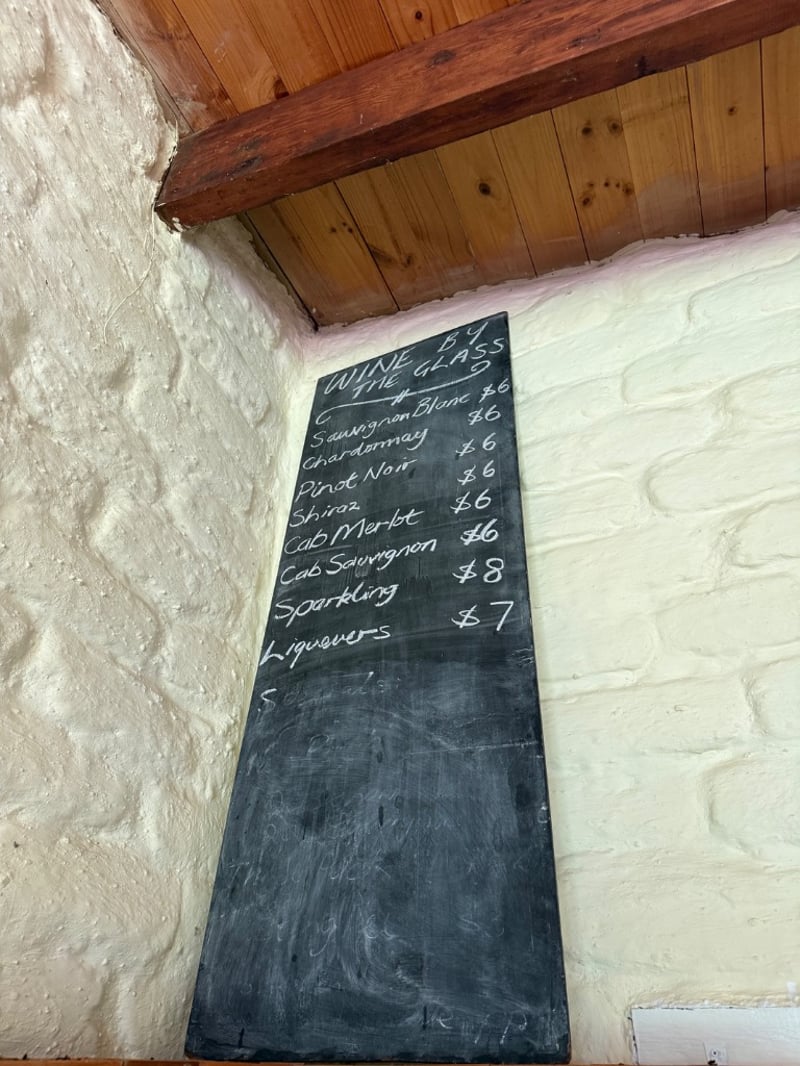 WINE BY
THE GLASS
Sauvignon Blanc $6
Chardornnay $6
Pinot Noir $6
Shiraz $6
Cab Merlot $6
Cab Sauvignon $6
Sparkling $8
Liqueuers $7